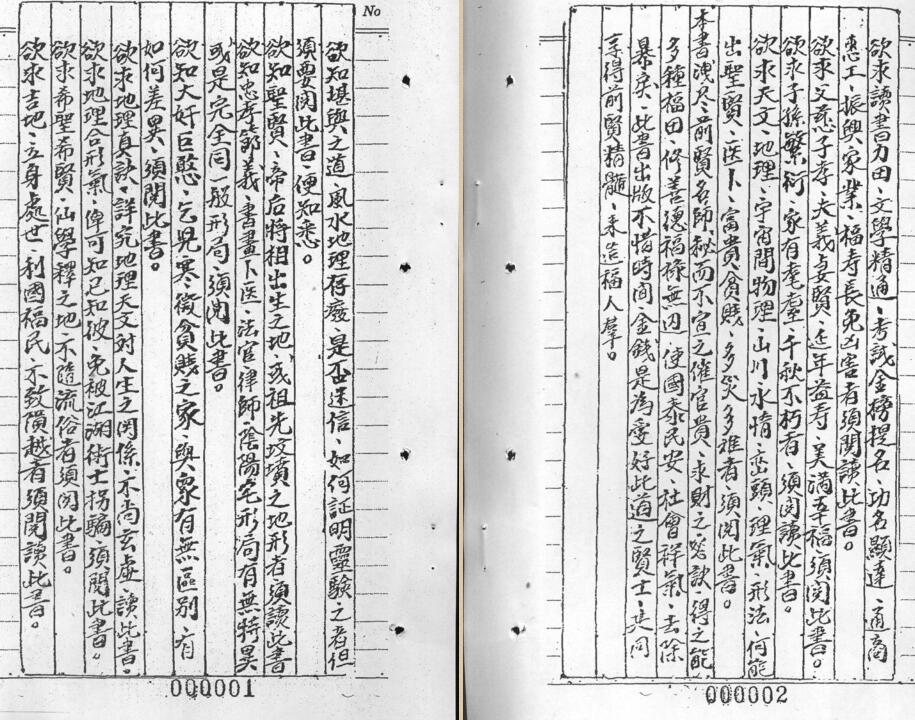 No
欲知堪輿之道、風水地理存廢、是否迷信、如何証明靈驗之者但
須要閱此書、便知悉。
欲知聖賢、帝后將相出生之地、或祖先坟墳之地形者須讀此書
欲知忠孝節義、書畫卜医、法官律師、陰陽宅形局有無特異
或是完全同一般形局、須閱此書。
欲知大奸巨憝、乞兒寒微貧賤之家、與眾有無區別、有
如何差異、須閱此書。
欲求地理真訣、詳究地理天文对人生之関係、不尚玄虛、讀此書。
欲求地理合形氣、俾可知己知彼、免被江湖術士拐騙、須閱此書。
欲求希聖希賢、仙學釋之地、不隨流俗者須閱此書。
欲求吉地、立身處世、利國福民、不致隕越者須閱讀此書。
000001
欲求讀書力田、文學精通、考試金榜提名、功名顯達、通商
惠工、振興家業、福寿長免凶害者須閱讀此書。
欲求父慈子孝、夫義妻賢、延年益寿、美滿幸福、須閱此書。
欲求子孫繁衍、家有耄耋、千秋不朽者、須閱讀此書。
欲求天文、地理、宇宙間物理、山川水情、巒頭、理氣、形法、何能
出聖賢、医卜、富貴貧賤、多災多难者須閱此書。
本書洩尽前賢名師秘而不宣之催官貴、求財之密訣、得之能
多種福田、修善德福祿無边、使國泰民安、社會祥氣、去除
暴戾、此書出版不惜時间金錢是為愛好此道之賢士、共同
享得前賢精髓、來造福人羣。
000002